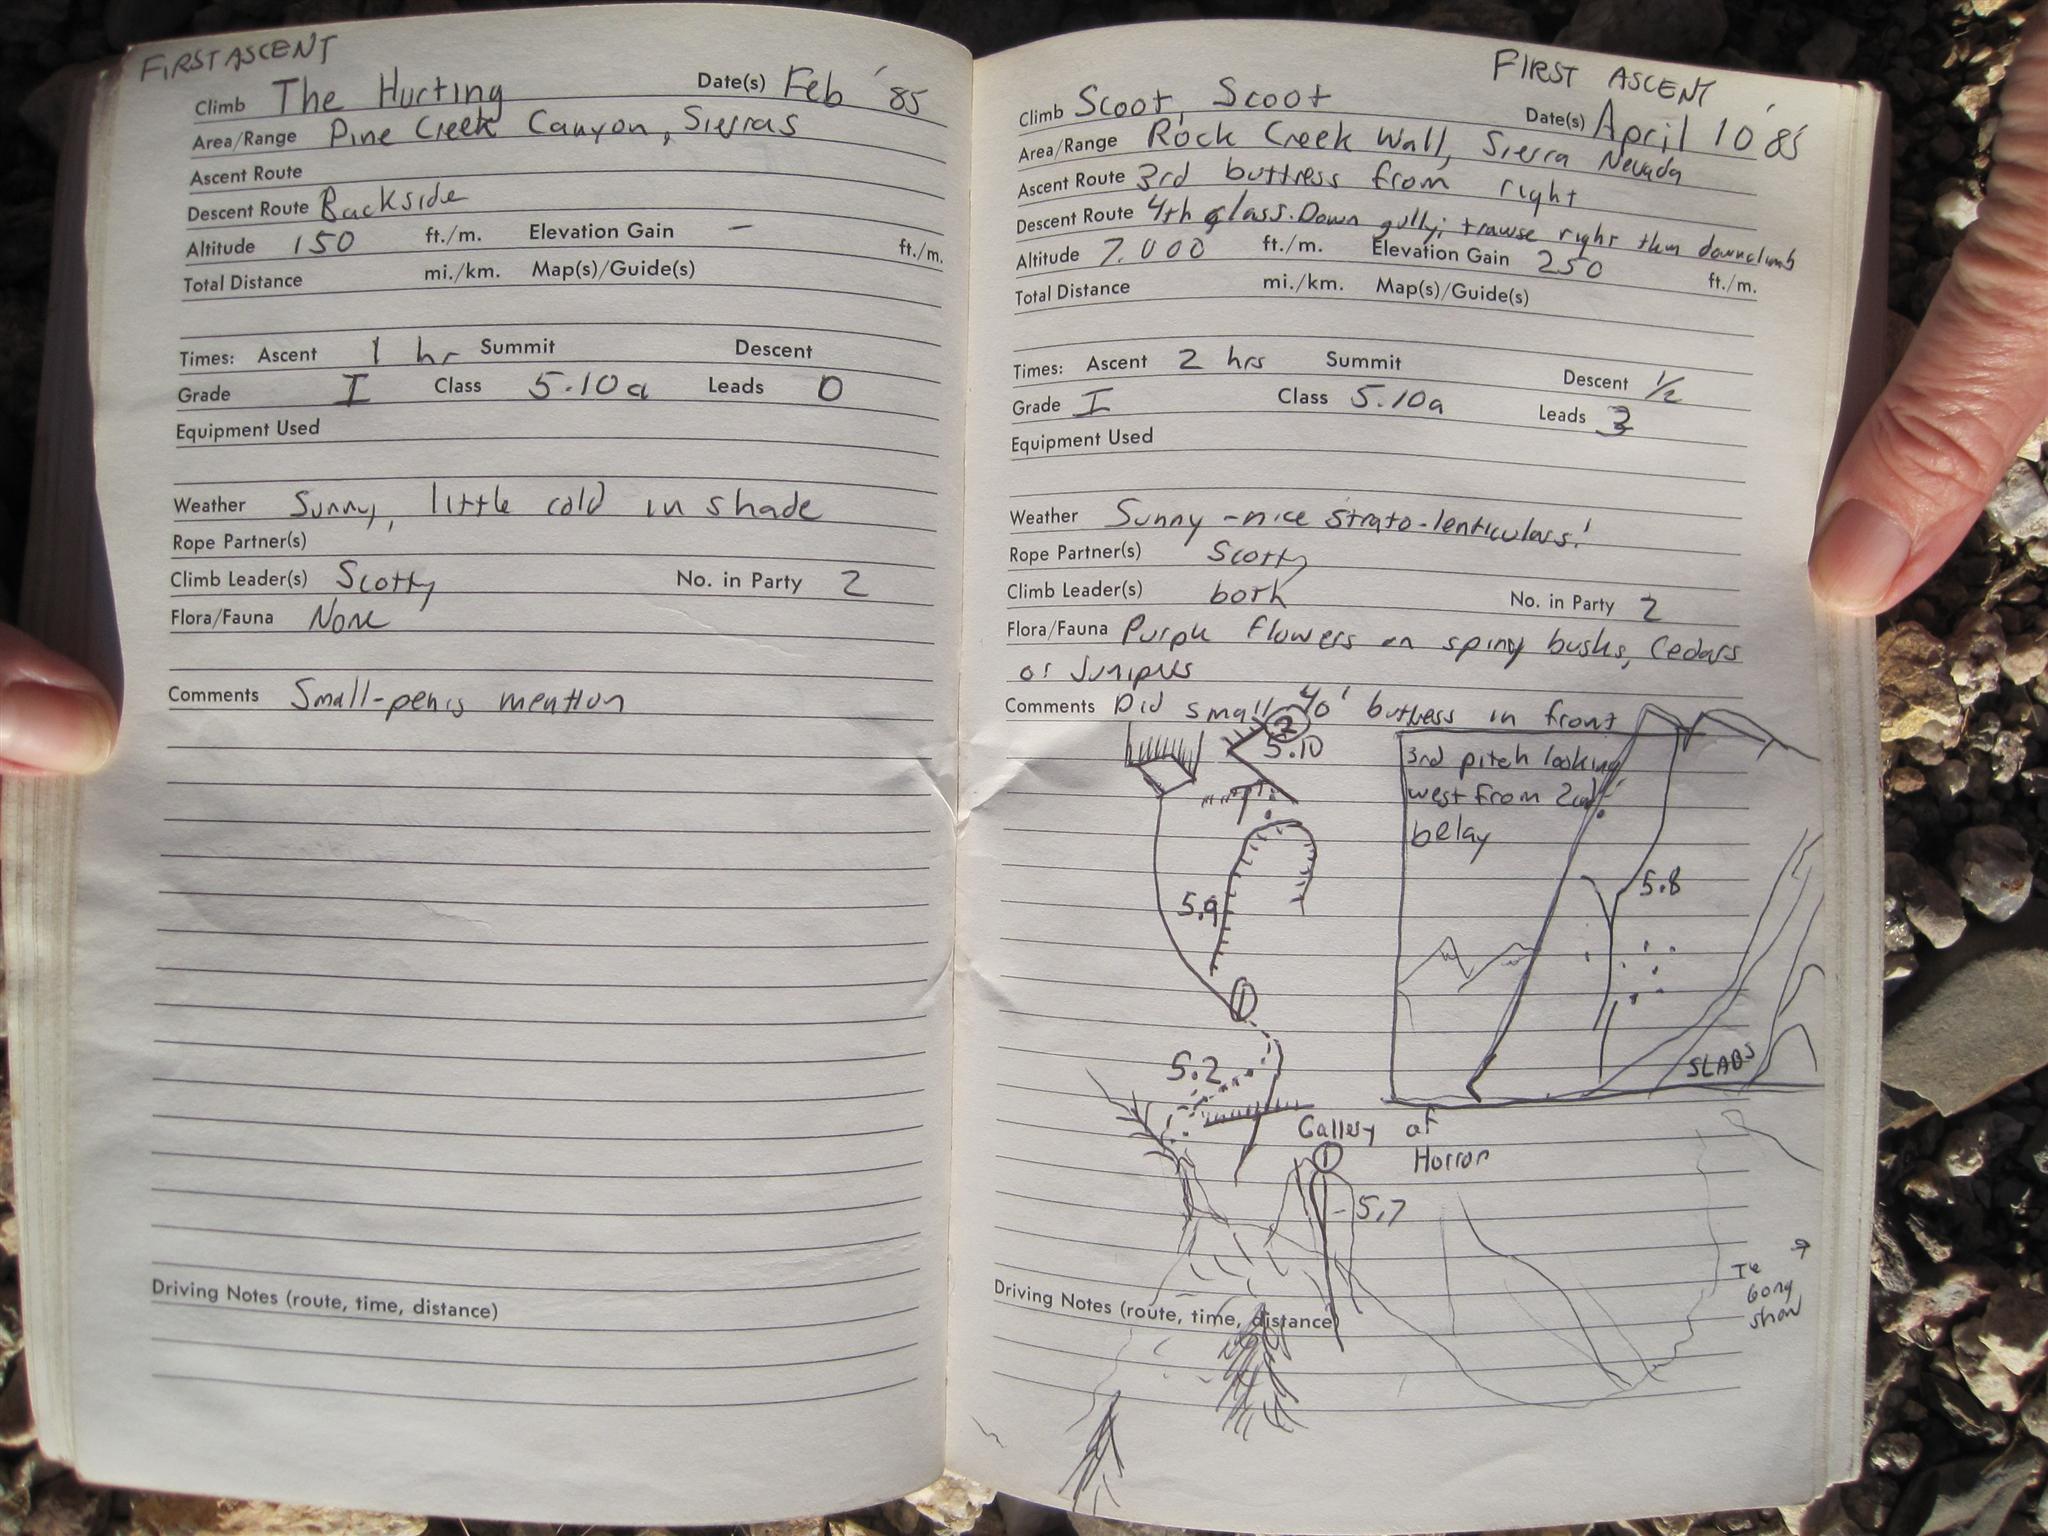 FIRST ASCENT
Climb The Hurting Date(s) Feb '85
Area/Range Pine Creek Canyon, Sierras
Ascent Route
Descent Route Backside
Altitude 150 ft./m. Elevation Gain — ft./m.
Total Distance mi./km. Map(s)/Guide(s)
Times: Ascent 1 hr Summit Descent
Grade I Class 5.10a Leads 0
Equipment Used
Weather Sunny, little cold in shade
Rope Partner(s)
Climb Leader(s) Scotty No. in Party 2
Flora/Fauna None
Comments Small-penis mention
Driving Notes (route, time, distance)
FIRST ASCENT
Climb Scoot, Scoot Date(s) April 10 '85
Area/Range Rock Creek Wall, Sierra Nevada
Ascent Route 3rd buttress from right
Descent Route 4th class. Down gully; travrse right then downclimb
Altitude 7,000 ft./m. Elevation Gain 250 ft./m.
Total Distance mi./km. Map(s)/Guide(s)
Times: Ascent 2 hrs Summit Descent 1/2
Grade I Class 5.10a Leads 3
Equipment Used
Weather Sunny - nice strato-lenticulars!
Rope Partner(s) Scotty
Climb Leader(s) both No. in Party 2
Flora/Fauna Purple flowers on spiny bushs, Cedars
or Junipers
Comments Did small 40' buttress in front
2
5.10
3rd pitch looking
west from 2nd
belay
5.8
5.9
1
5.2
SLABS
Gallery of
Horror
1
5.7
Driving Notes (route, time, distance)
Gong
show